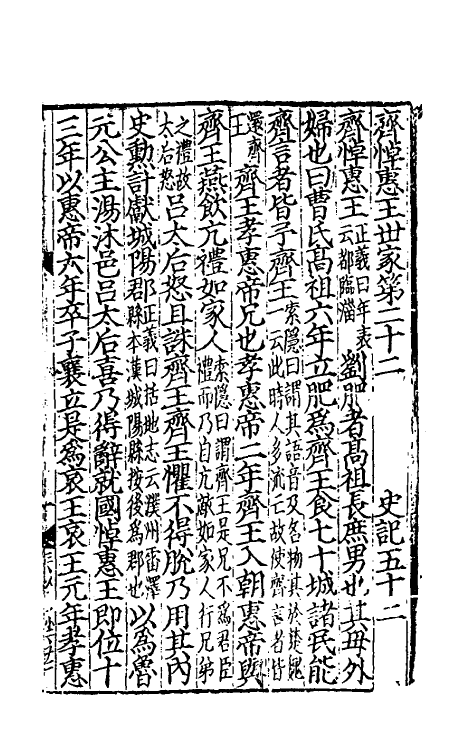 齊悼惠王世家第二十二　史記五十二
齊悼惠王正義曰年表云都臨淄劉肥者髙祖長庶男也其母外
婦也曰曹氏髙祖六年立肥爲齊王食七十城諸民能
齊言者皆予齊王索隱曰謂其語音及名物異於楚魏一云此時人多流亡故使齊言者皆
還齊王齊王孝惠帝兄也孝惠帝二年齊王入朝惠帝與
齊王燕飲亢禮如家人索隱曰謂齊王是兄不爲君臣禮而乃自亢敵如家人行兄弟
之禮故太后怒吕太后怒且誅齊王齊王懼不得脫乃用其內
史勳計獻城陽郡正義曰括地志云濮州雷澤縣本漢城陽縣按後爲郡也以爲魯
元公主湯沐邑吕太后喜乃得辭就國悼惠王即位十
三年以惠帝六年卒子襄立是爲哀王哀王元年孝惠